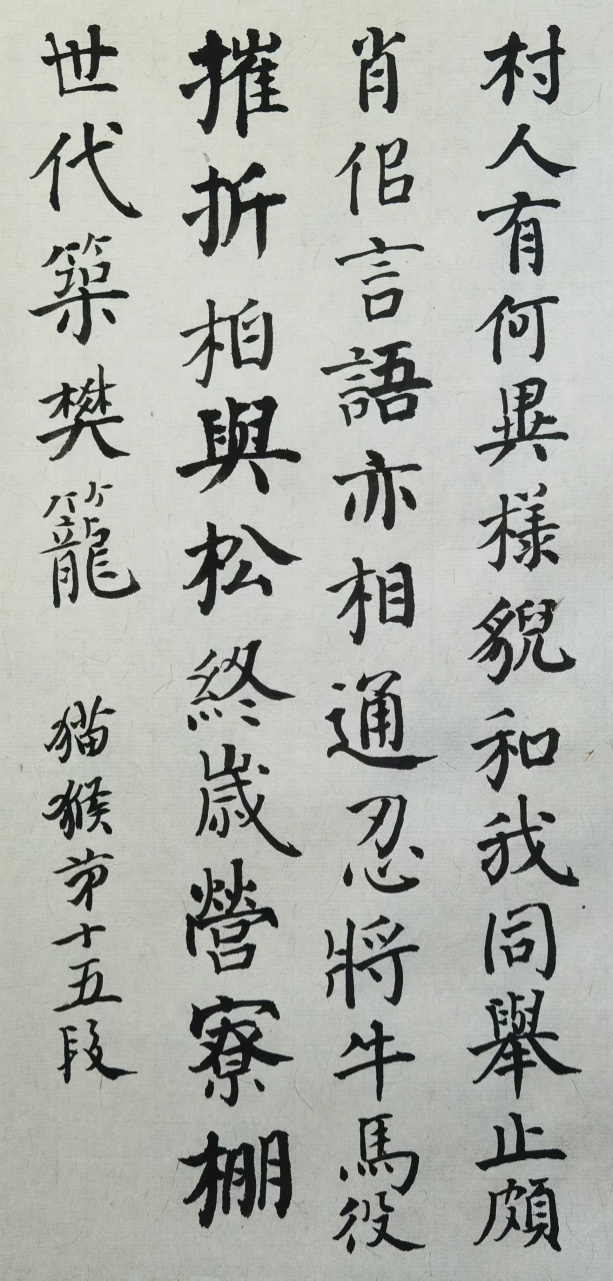 村人有何異樣貌和我同舉止頗
肖佀言語亦相通忍將牛馬役
摧折柏與松終歲營寮棚
世代築樊籠
猫猴第十五段